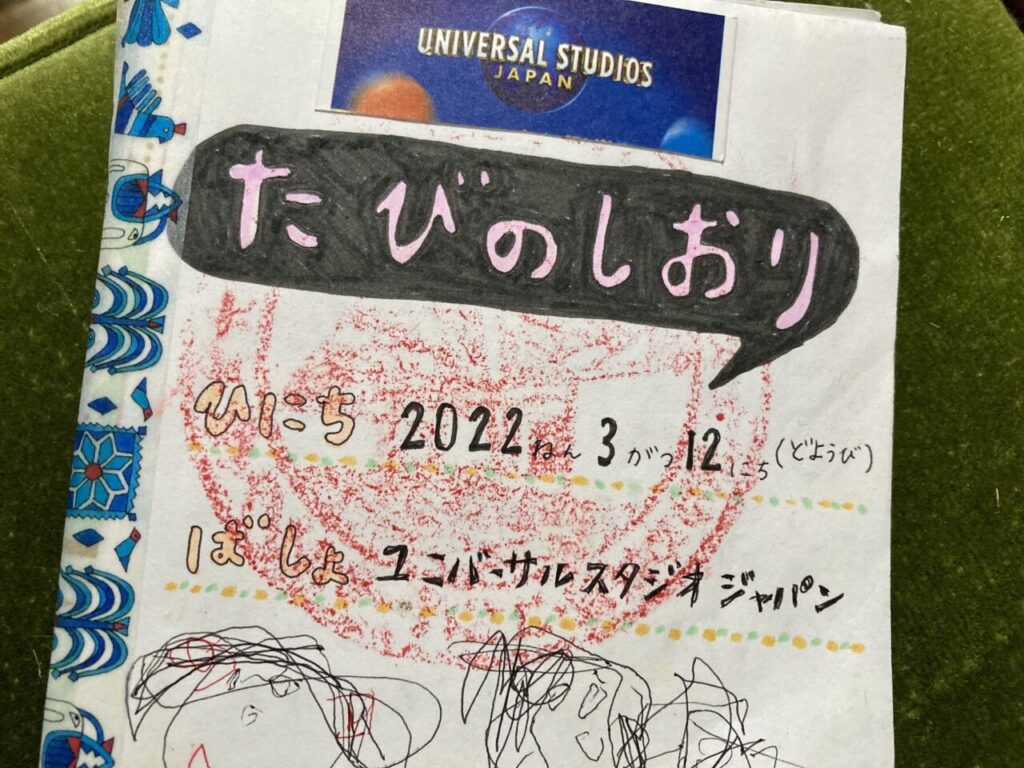 UNIVERSAL STUDIOS
JAPAN
たびのしおり
ひにち 2022ねん 3がつ12にち(どようび)
ばしょ ユニバーサルスタジオジャパン